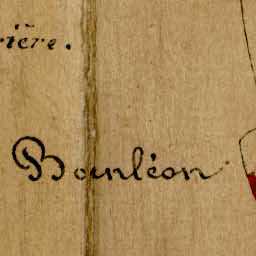 rière.
Bounléon